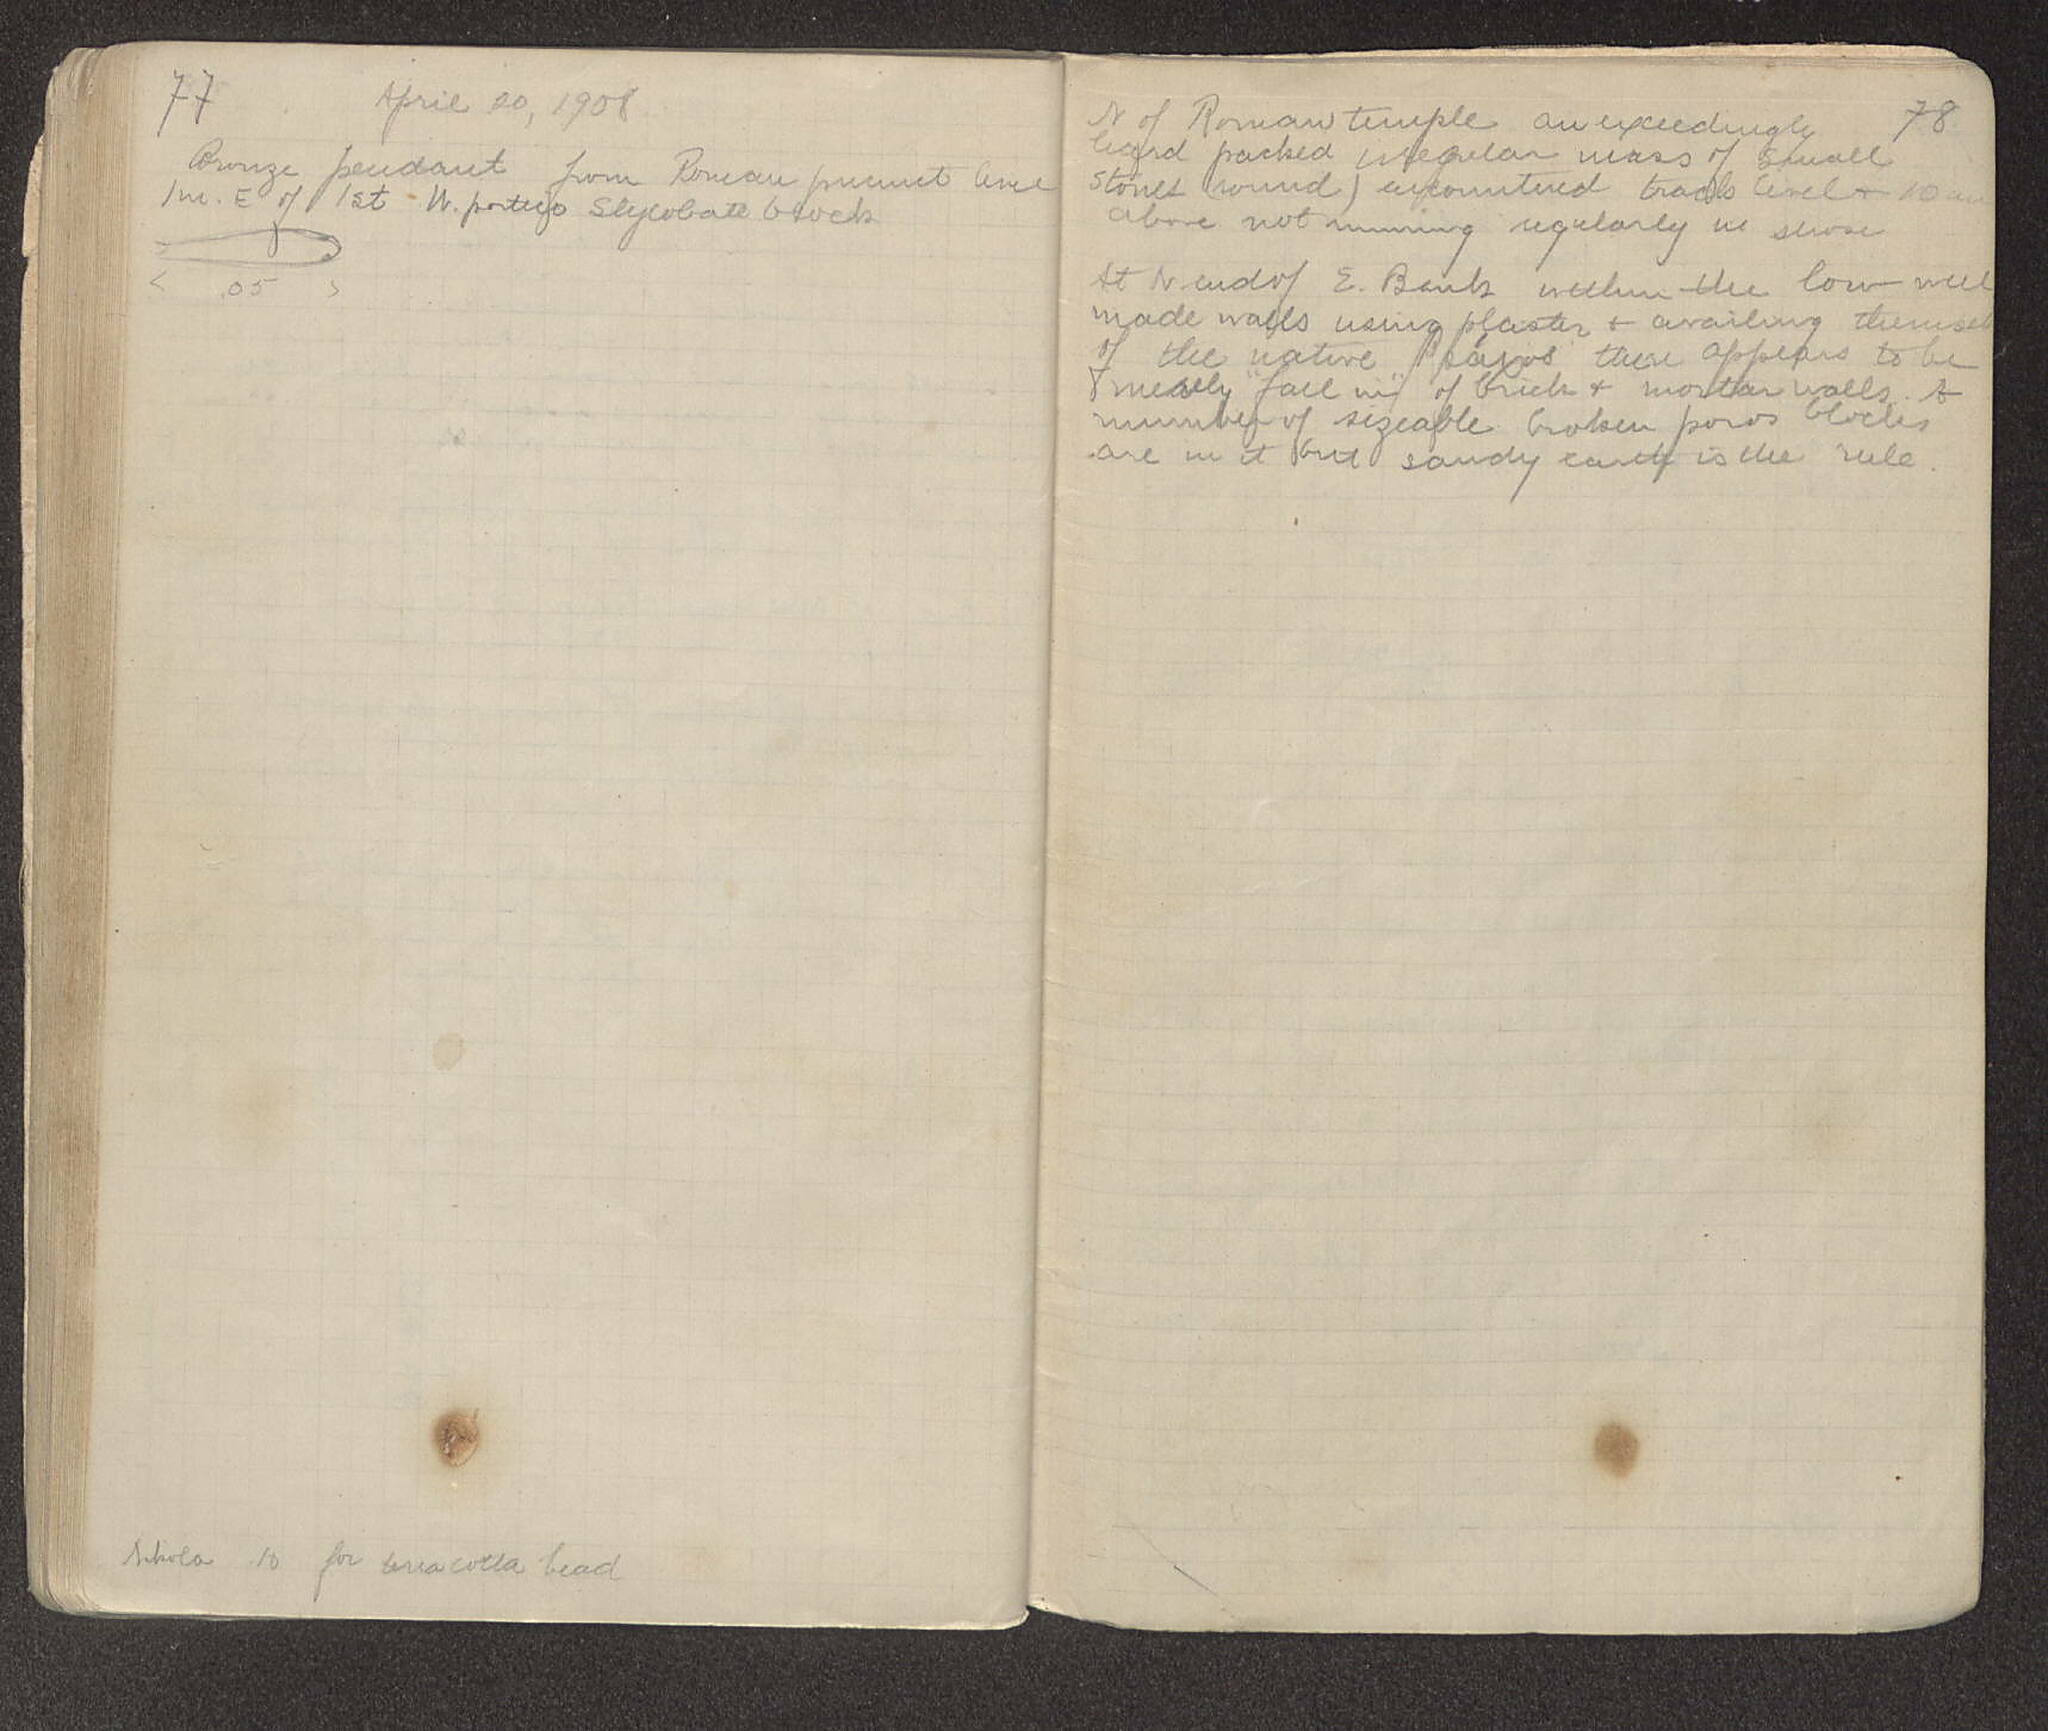 77
April 20, 1908
Bronze pendant from Roman precinct level
1m. E of 1st W. portico Stylobate block
< .05 >
for terra cotta bead
78
N of Roman temple an exceedingly
hard packed irregular mass of small
stones (round) encountered track level + 10 cm
above not running regularly in
At N end of E. Bank within the low well
made walls using plaster + availing themsel
of the native there appears to be
merely "fall in" of brick + mortar walls. A
number of sizeable broken poros blocks
are in it but sandy earth is the rule.